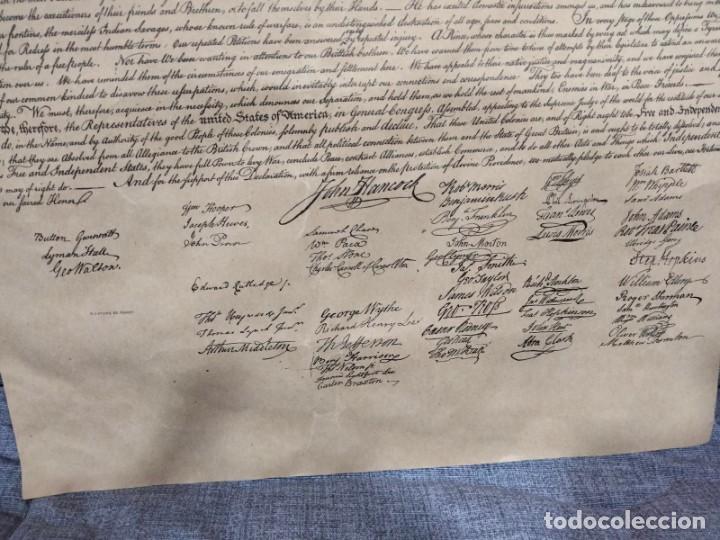 become the executioners of their friends and Brethren, or to fall themselves by their Hands. He has excited domestic insurrections amongst us, and has endeavoured to bring
frontiers, the merciless Indian Savages, whose known rule of warfare, is an undistinguished destruction of all ages, sexes and conditions. In every stage of these Oppressions We
for Redress in the most humble terms: Our repeated Petitions have been answered by repeated injury. A Prince, whose character is thus marked by every act which may define a Tyrant
the ruler of a free people. Nor have We been wanting in attentions to our Brittish brethren. We have warned them from time to time of attempts by their legislature to extend an
over us. We have reminded them of the circumstances of our emigration and settlement here. We have appealed to their native justice and magnanimity, and we have conjured them
of our common kindred to disavow these usurpations, which, would inevitably interrupt our connections and correspondence. They too have been deaf to the voice of justice and
We must, therefore, acquiesce in the necessity, which denounces our Separation, and hold them, as we hold the rest of mankind, Enemies in War, in Peace Friends.
We, therefore, the Representatives of the united States of America, in General Congress, Assembled, appealing to the Supreme Judge of the world for the rectitude of our
do, in the Name, and by Authority of the good People of these Colonies, solemnly publish and declare, That these United Colonies are, and of Right ought to be Free and Independent
that they are Absolved from all Allegiance to the British Crown, and that all political connection between them and the State of Great Britain, is and ought to be totally dissolved; and
Free and Independent States, they have full Power to levy War, conclude Peace, contract Alliances, establish Commerce, and to do all other Acts and Things which Independent
may of right do. And for the support of this Declaration, with a firm reliance on the protection of divine Providence, we mutually pledge to each other our Lives,
our sacred Honor
John Hancock
Button Gwinnett
Lyman Hall
Geo Walton.
Wm Hooper
Joseph Hewes,
John Penn
Edward Rutledge
Thos Heyward Junr.
Thomas Lynch Junr.
Arthur Middleton
Samuel Chase
Wm Paca
Thos Stone
Charles Carroll of Carrollton
George Wythe
Richard Henry Lee
Th Jefferson
Benj Harrison
Thos Nelson jr.
Francis Lightfoot Lee
Carter Braxton
Robt Morris
Benjamin Rush
Benj Franklin
John Morton
Geo Clymer
Jas. Smith
Geo. Taylor
James Wilson
Geo. Ross
Caesar Rodney
Geo Read
Tho M:Kean
Wm Floyd
Phil. Livingston
Frans. Lewis
Lewis Morris
Richd. Stockton
Jno Witherspoon
Fras. Hopkinson
John Hart
Abra Clark
Josiah Bartlett
Wm Whipple
Saml Adams
John Adams
Robt Treat Paine
Elbridge Gerry
Step. Hopkins
William Ellery
Roger Sherman
Saml Huntington
Wm Williams
Oliver Wolcott
Matthew Thornton
todocoleccion